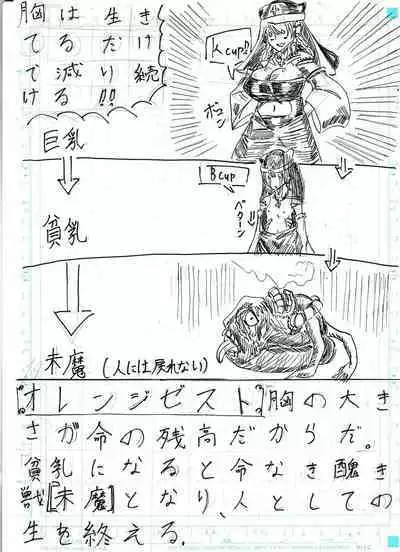 胸は生き
てるだけ
で減り続
ける!!
K cup!!
ボヨン
巨乳
B cup
ペタン
貧乳
末魔 (人には戻れない)
『オレンジゼスト』胸の大き
さが命の残高だからだ。
貧乳になると命なき醜き
獣『末魔』となり、人としての
生を終える。